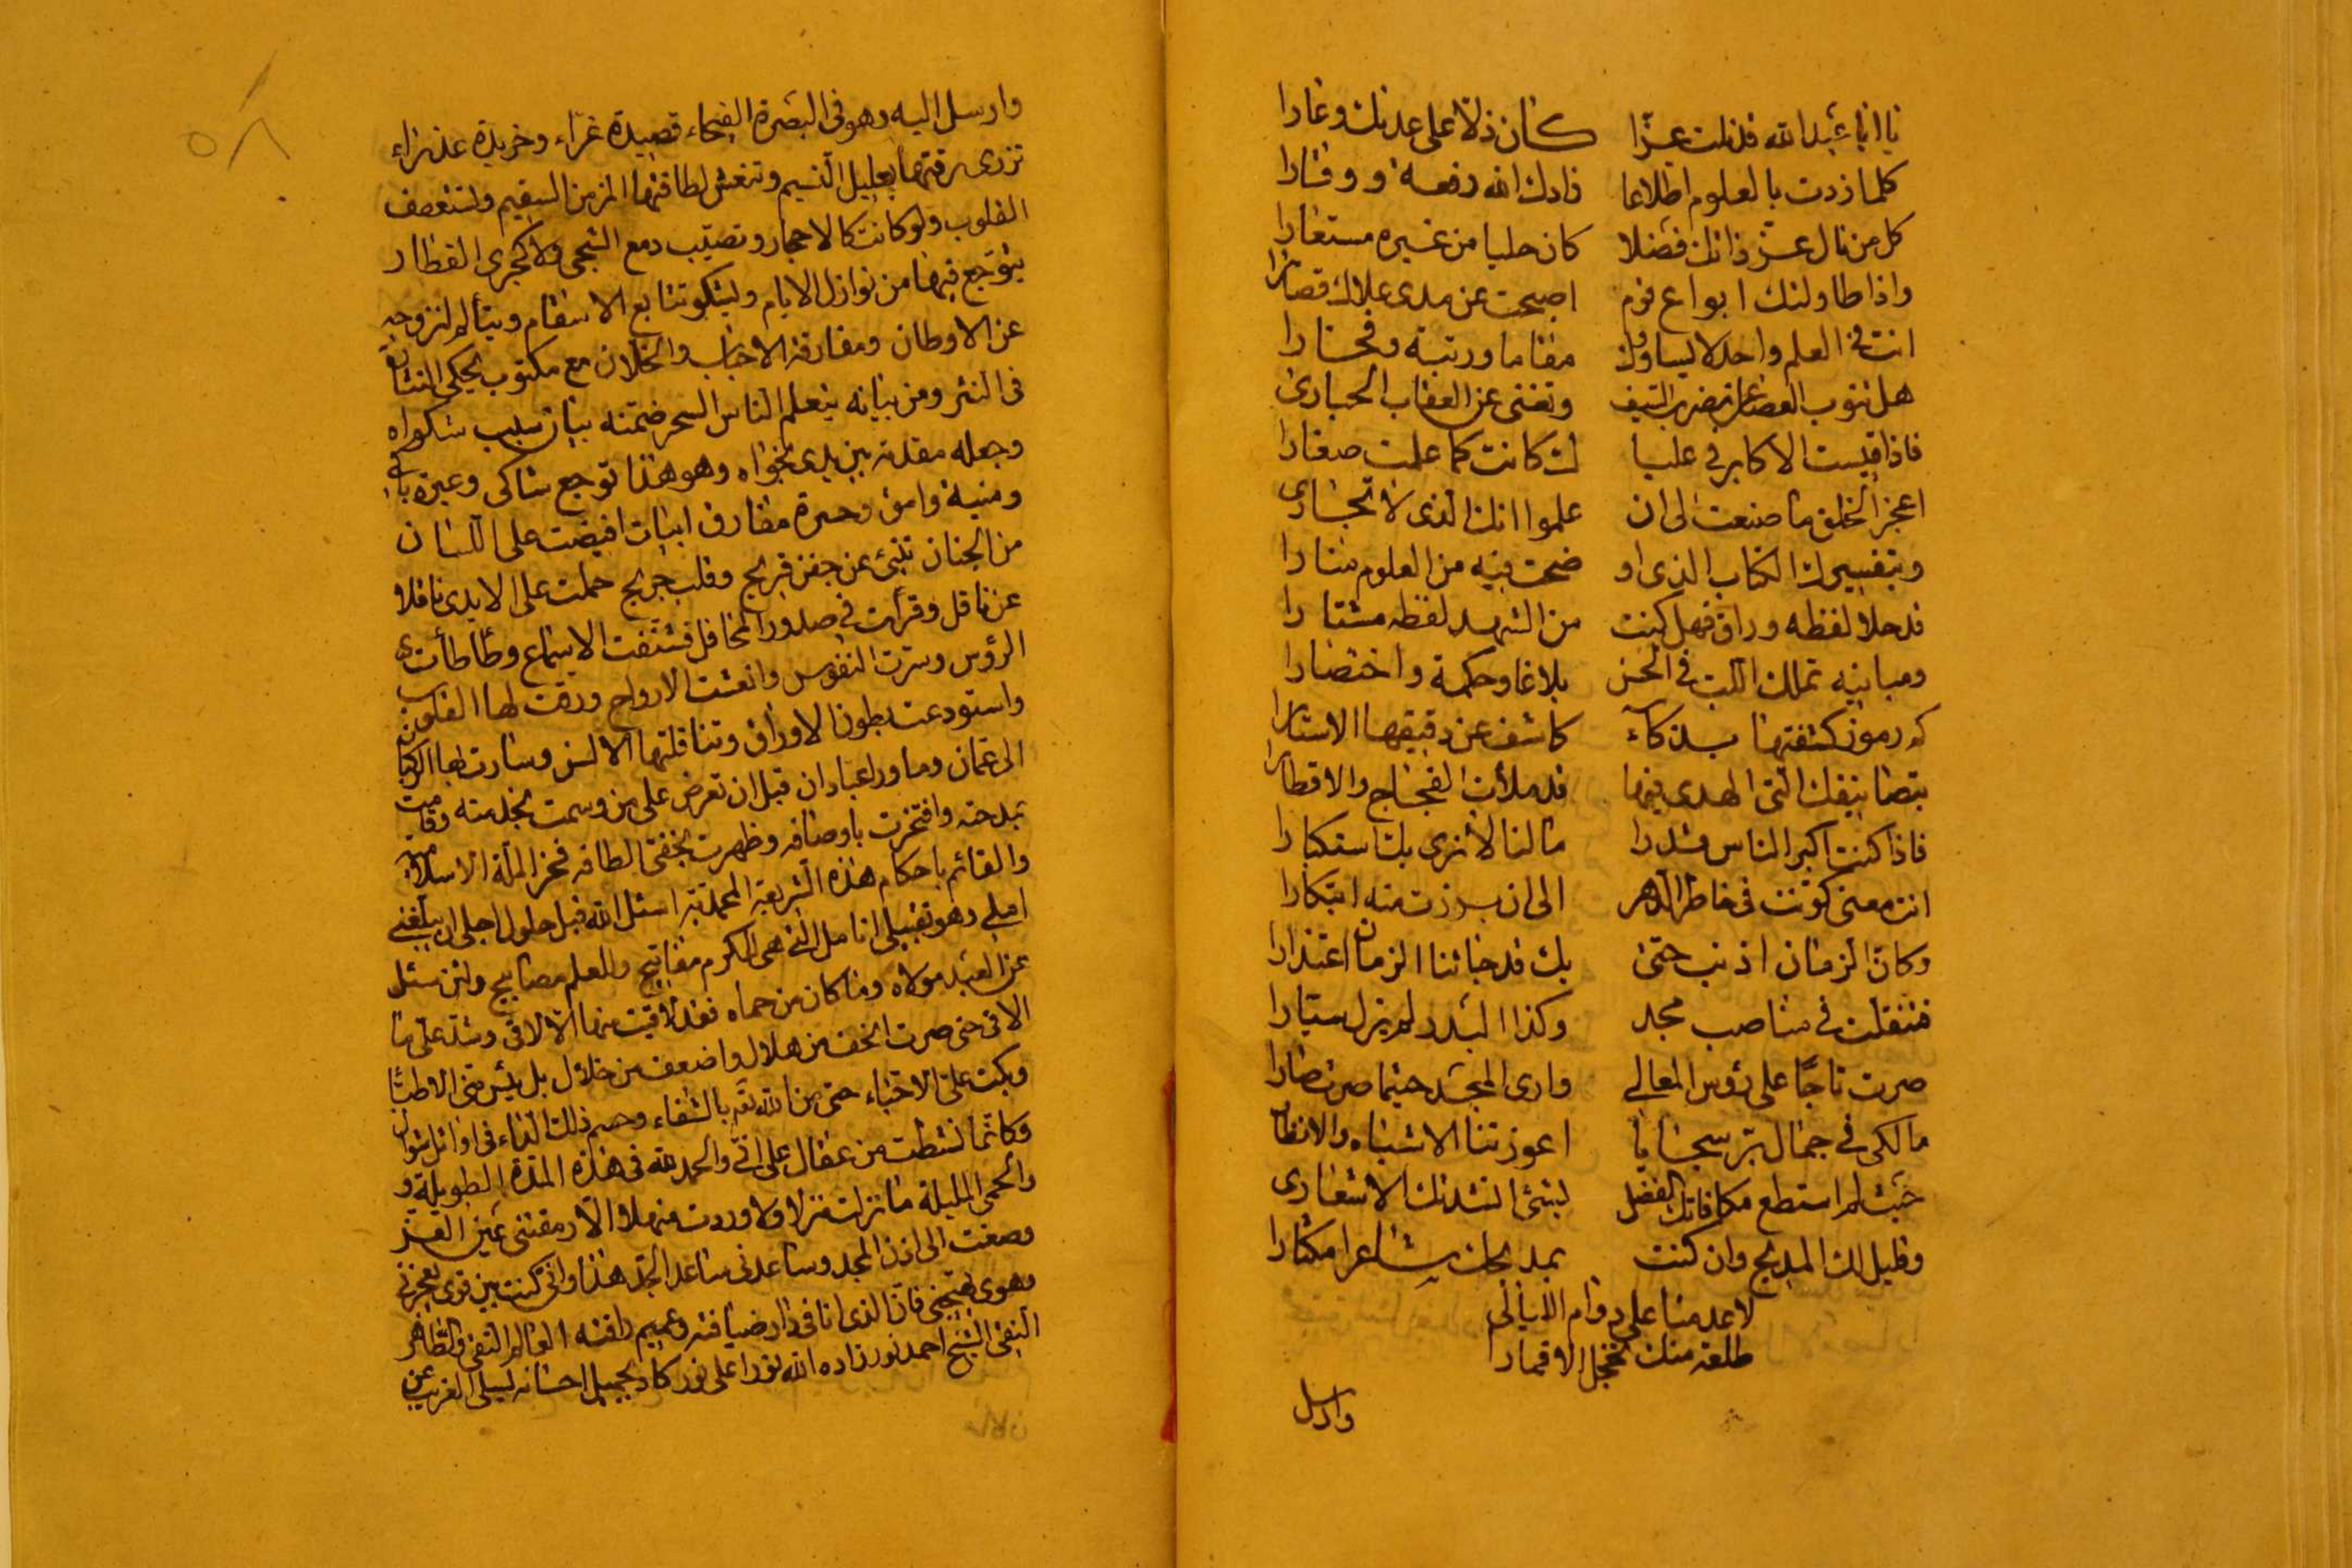 يا ابا عبدالله قد نلت عزّا كان ذلا على عدنك وعارا
كلما زدت بالعلوم اطلاعا زادك الله رفعة ووقارا
كل من نال عز ذاتك فضلا كان حليا من غيره مستعارا
واذا طاولتك ابواع قوم اصبحت عن مدى علاك قصارا
انت في العلم واحد لا يساووك مقاما ورتبة وفخارا
هل تنوب العصا عن مضرب السيف وتغنى عن العقاب الحبارى
فاذا قيست الاكابر في عليا ك كانت كما علمت صغارا
اعجز الخلق ما صنعت الى ان علموا انك الذى لا تجارى
وبتفسيرك الكتاب الذى او ضحت فيه من العلوم منارا
قد حلا لفظه وراق فهل كنت من الشهد لفظه مشتارا
ومبانيه تملك اللب في الحسن بلاغا وحكمة واختصارا
كم رموز كشفتها بذكاء كاشف عن دقيقها الاستارا
بتصانيفك التي الهدى فيها قد ملأت الفجاج والاقطارا
فاذا كنت اكبر الناس قدرا ما لنا لا نرى بك استكبارا
انت معنى كونت في خاطر الدهر الى ان برزت منه ابتكارا
وكان الزمان اذنب حتى بك قد جائنا الزمان اعتذارا
فتنقلت في مناصب مجد وكذا البدر لم يزل سيارا
صرت تاجًا على رؤس المعالي وارى المجد حيثما صرت صارا
مالكى في جمال بر سجايا اعوزتنا الاشباه والانظارا
حيث لم استطع مكافاتك الفضل لبثى انشدتك الاشعارى
وقليل لك المديح وان كنت بمديحك شاعرا مكثارا
لا عدمنا على دوام الليالي
طلعة منك تخجل الاقمارا
وارسل
٥٨
وارسل اليه وهو في البصرة الفيحاء قصيدة غرّاء وخريدة عذراء
تزرى برقتها بعليل النسيم وتنعش لطافتها المزمن السقيم وتستعطف
القلوب ولو كانت كالاحجار وتصيّب دمع الشجى ولا كمجرى القطار
يتوجع فيها من نوازل الايام ويشكو تتابع الاسقام ويتألم لنزوحه
عن الاوطان ومفارقة الاحباب والخلان مع مكتوب يحكى النثار
في النثر ومن بيانه يتعلم الناس السحر ضمنه بيان سبب شكواه
وجعله مقدمة بين يدى نجواه وهو هذا توجع شاكى وعبرة باكى
ومنية وامق وحسرة مفارق ابيات افيضت على اللسان
من الجنان تنبئ عن جفن قريح وقلب جريح حملت على الايدى نا قلا
عن ناقل وقرأت في صدور المحافل فشنفت الاسماع وطأطأت
الرؤس وسرت النفوس وانعشت الارواح ورقت لها القلوب
واستودعت بطون الاوراق وتناقلتها الالسن وسارت بها الركبان
الى عمان وما ورا عبادان قبل ان تعرض على من وسمت بخدمته وقامت
بمدحته وافتخرت باوصافه وظهرت بخفى الطافه فخر الملة الاسلامية
والقائم باحكام هذه الشريعة المحمدية اسئل الله قبل حلول اجلى ان يبلغنى
املى وهو تقبيلى انامل التي هي للكرم مفاتيح وللعلم مصابيح ولئن سئل
عن العبد مولاه وما كان من حماه فقد لاقيت منها الا لاقى وشد على ما
الاقى حتى صرت اخف من هلال واضعف من خلال بل يئس منى الاطبا
وبكت على الاحباء حتى من الله تعم بالشفاء وحسم ذلك الداء في اوائل شوال
وكانما نشطت من عقال على انى والحمد لله في هذه المدة الطويلة و
والحمى المليلة ما نزلت منزلا ولا وردت منهلا الا رمقتنى عين العز
وصغت الى اذن المجد وساعدنى ساعد الجد هذا وانى كنت بين قوى تعجزنى
وهوى يهيجنى فان الذى انا في دار ضيافته وعميم رافته العالم التقى والطاهر
النقى الشيخ احمد نور زاده الله نورا على نور كاد بجميل احسانه ليسلى الغريب عن